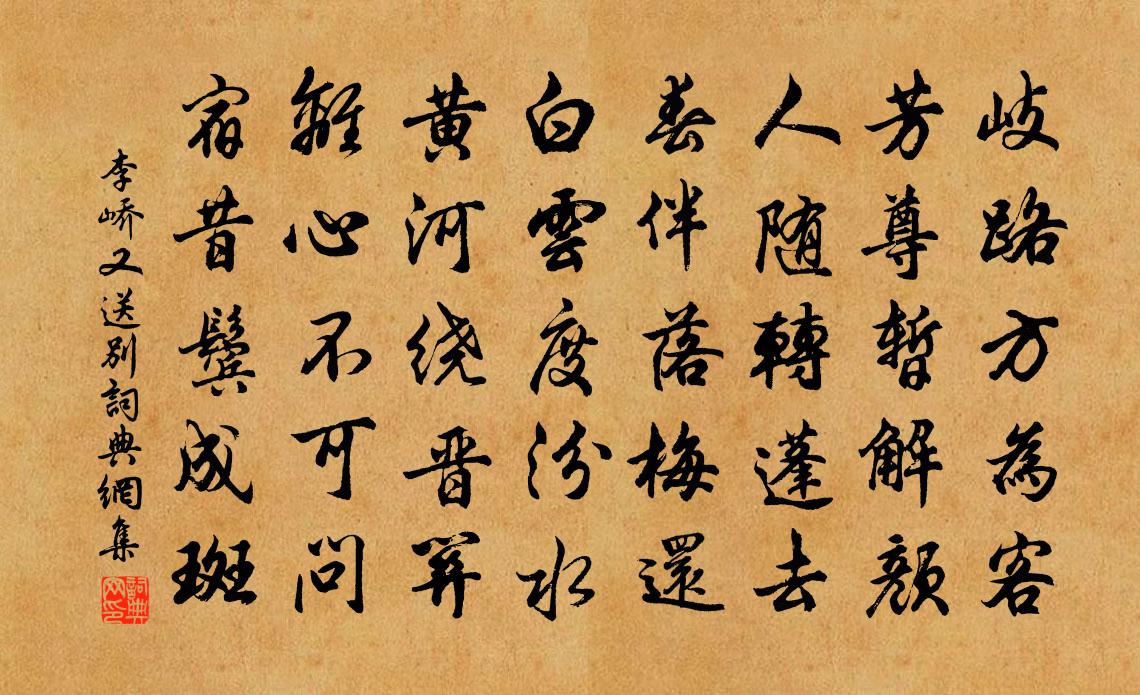 岐路方為客
芳尊暫解顏
人随轉蓬去
春伴落梅還
白雲度汾水
黃河绕晋關
離心不可問
宿昔鬢成斑
李嶠又送别詞典網集
詞典网印